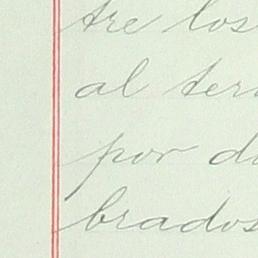 tre los
al ter
por d
brados